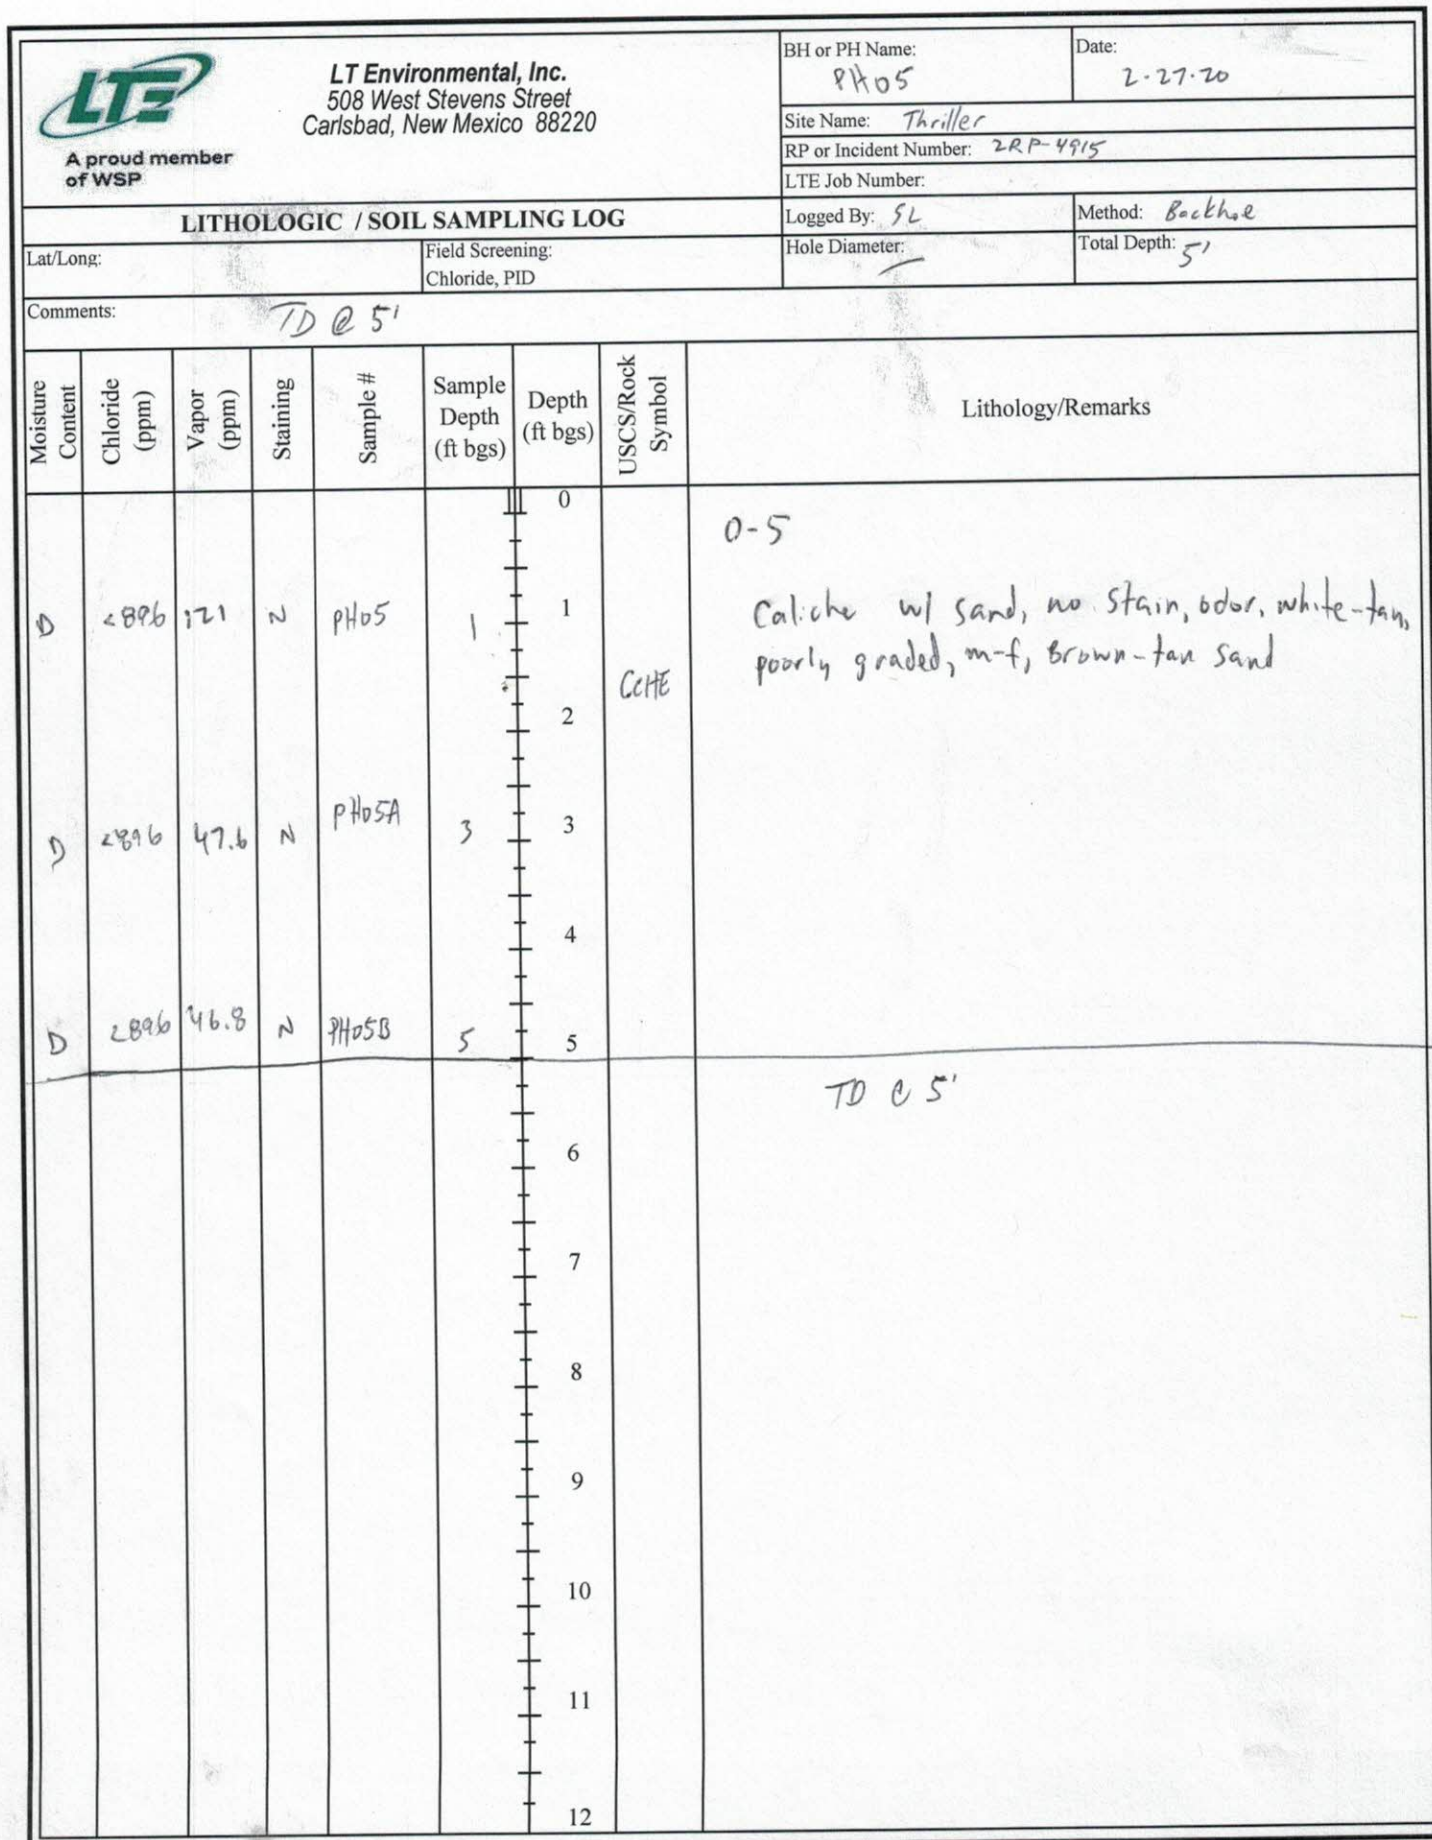 LTE
A proud member
of WSP
LT Environmental, Inc.
508 West Stevens Street
Carlsbad, New Mexico 88220
BH or PH Name:
PH05
Date:
2-27-20
Site Name: Thriller
RP or Incident Number: 2RP-4915
LTE Job Number:
LITHOLOGIC / SOIL SAMPLING LOG
Logged By: SL
Method: Backhoe
Lat/Long:
Field Screening:
Chloride, PID
Hole Diameter: —
Total Depth: 5'
Comments: TD @ 5'
Moisture
Content
Chloride
(ppm)
Vapor
(ppm)
Staining
Sample #
Sample
Depth
(ft bgs)
Depth
(ft bgs)
USCS/Rock
Symbol
Lithology/Remarks
0
0-5
D <896 121 N PH05 1 1 Caliche w/ sand, no stain, odor, white-tan,
poorly graded, m-f, Brown-tan sand
CCHE
2
D <896 47.6 N PH05A 3 3
4
D <896 46.8 N PH05B 5 5
TD @ 5'
6
7
8
9
10
11
12